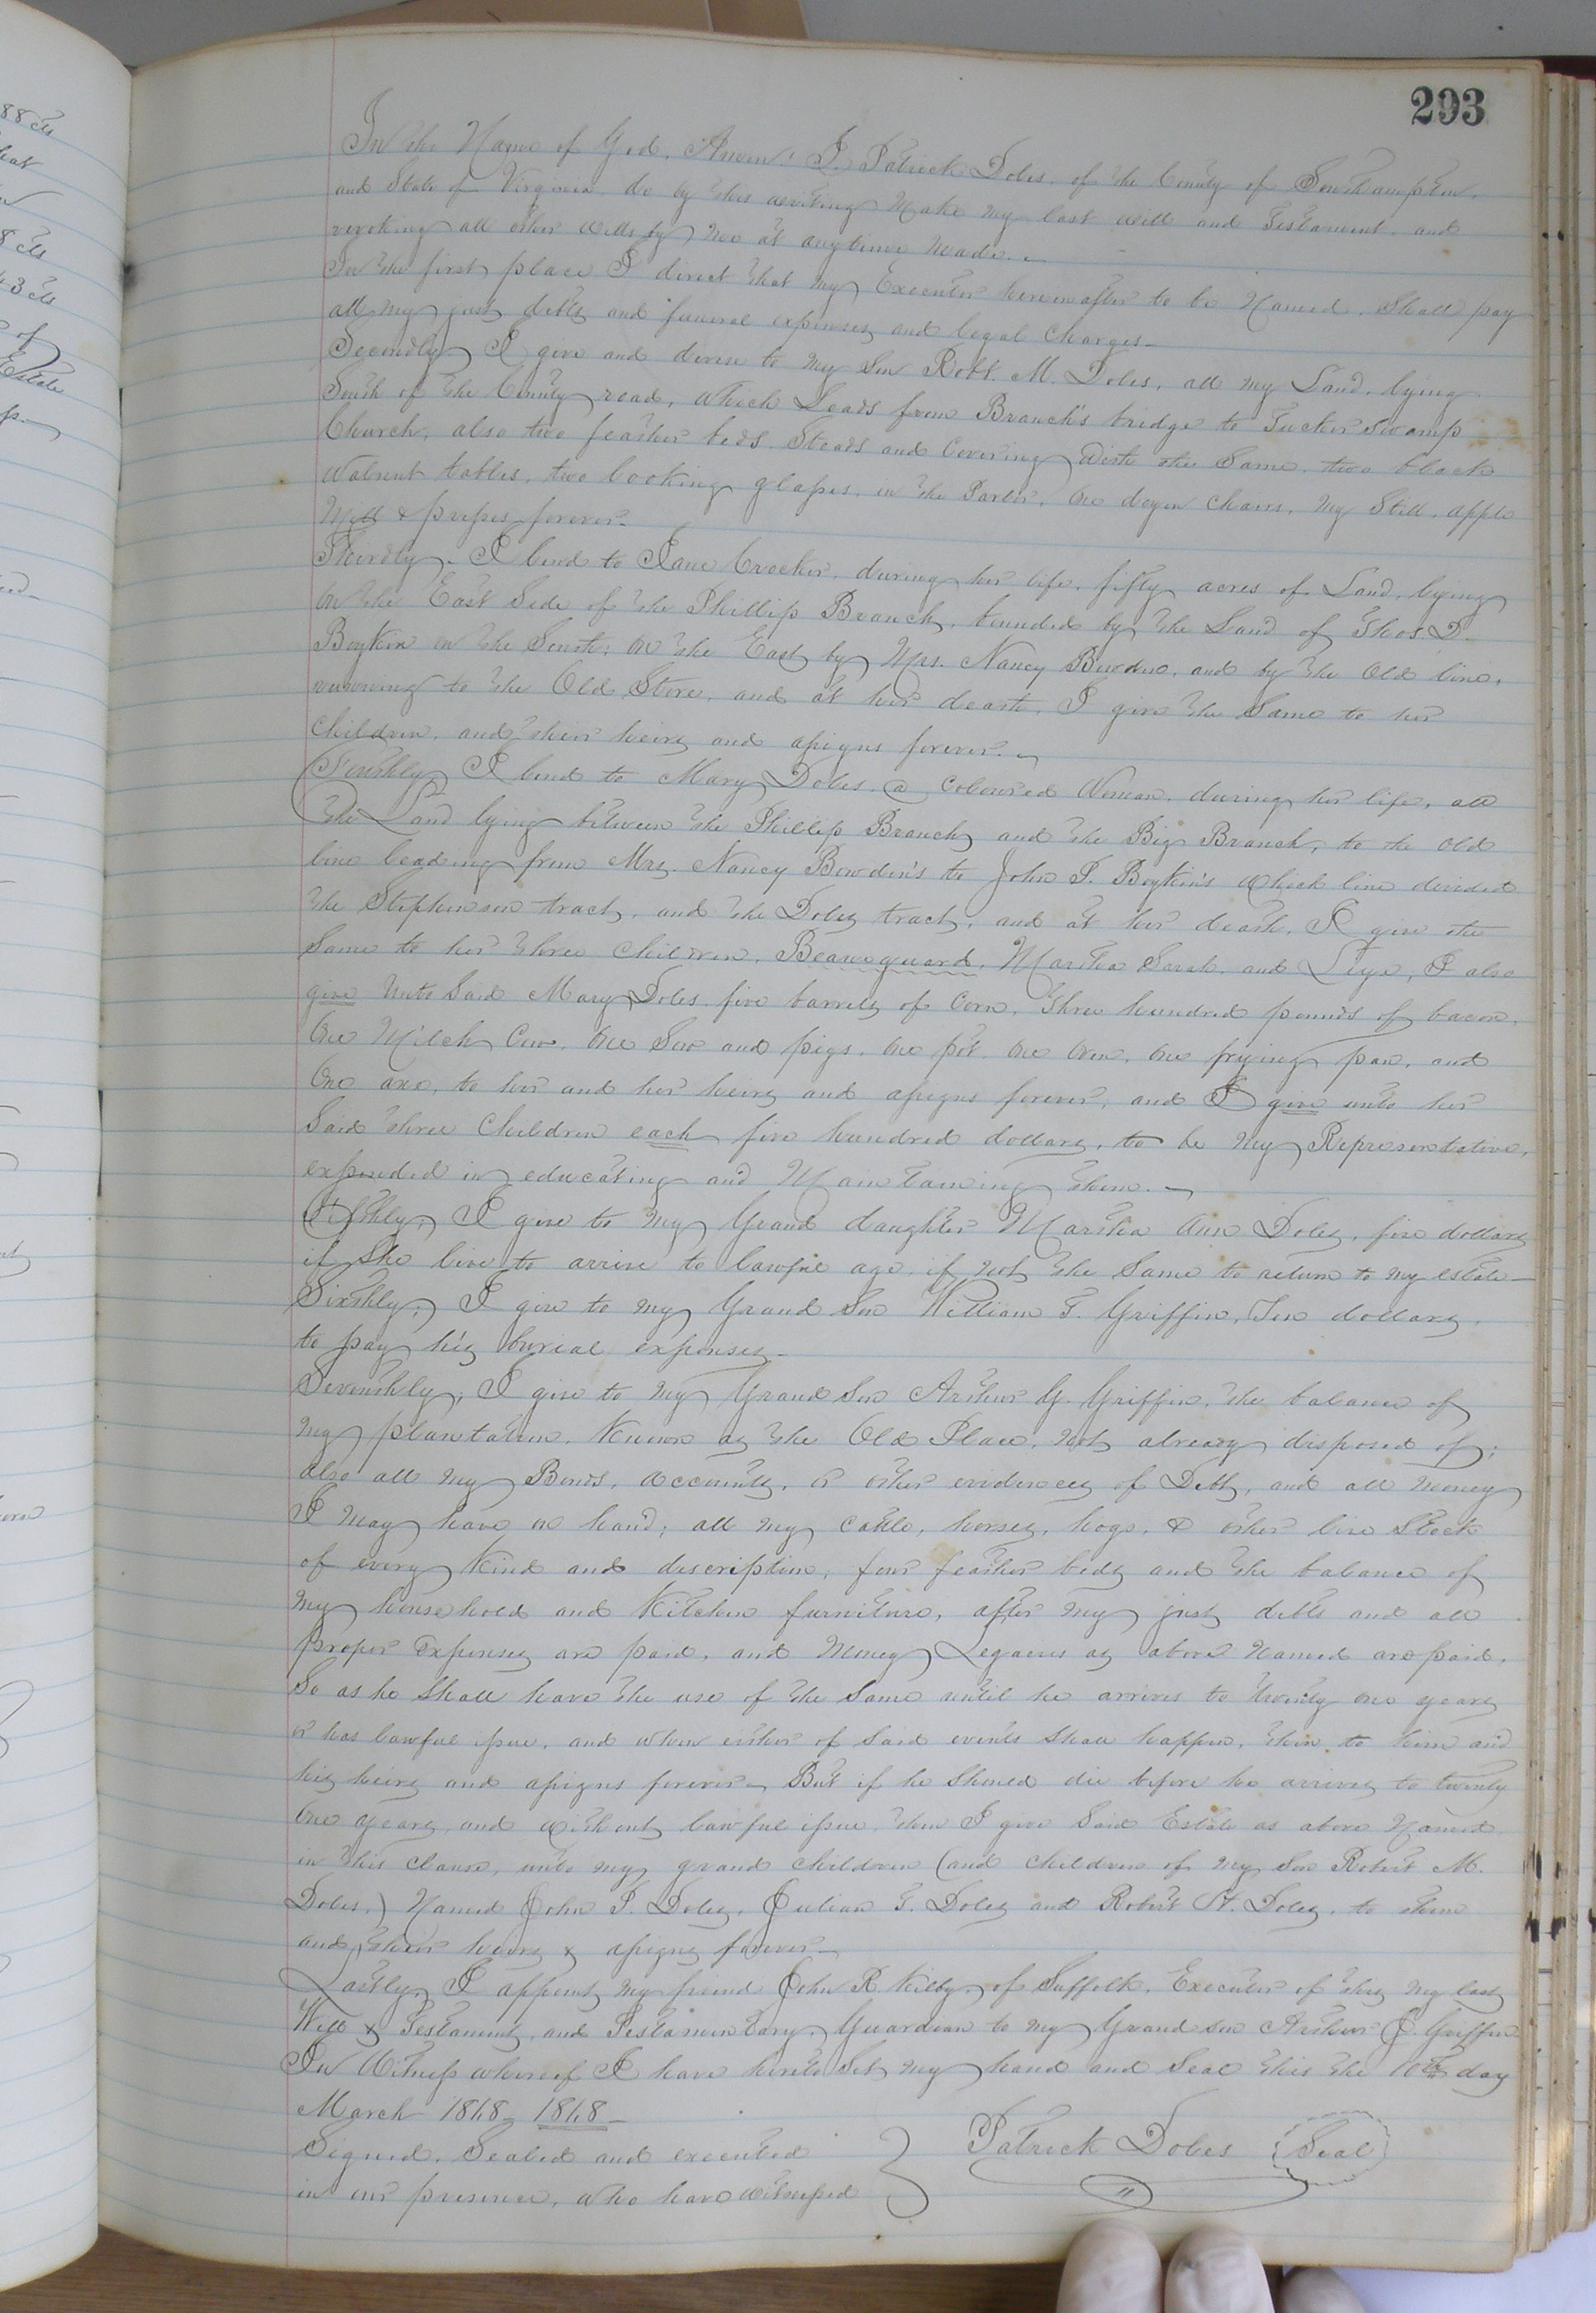 88 cts
that
8 cts
43 cts
of
Estate
293
In the Name of God, Amen! I, Patrick Doles, of the County of Southampton,
and State of Virginia do by this writing Make My last will and Testament, and
revoking all other wills by Me at anytime Made.
In the first place I direct that My Executor hereinafter to be Named, Shall pay
all my just debts and funeral expenses and legal charges—
Secondly I give and devise to My Son Robt. M. Doles, all My Land, lying
South of the County road, which Leads from Branch's bridge to Tucker Swamp
Church, also two feather beds, Steads and Covering with the Same, two black
walnut tables, two looking glasses, in the Parlor, one dozen chairs, My Still, apple
Mill & presses forever.
Thirdly. I lend to Jane Crocker, during her life, fifty acres of Land, lying
on the East Side of the Phillip Branch, bounded by the Land of Thos. D.
Boykin on the South; on the East by Mrs. Nancy Bowden, and by the Old line,
running to the Old Store, and at her death, I give the Same to her
children, and their heirs and assigns forever.
Fourthly I lend to Mary Doles, a Coloured Woman, during her life, all
the Land lying between the Phillip Branch and the Big Branch, to the old
line leading from Mrs. Nancy Bowden's to John P. Boykin's which line divided
the Stephenson tract, and the Doles tract, and at her death, I give the
Same to her three Children, Beauregard, Martha Sarah, and Liza, I also
give Unto Said Mary Doles five barrels of Corn, three hundred pounds of bacon,
One Milch Cow, One Sow and pigs, One pot, One Oven, One frying pan, and
One axe, to her and her heirs and assigns forever, and I give unto her
Said three Children each five hundred dollars, to be My Representative,
expended in educating and Maintaining them.
Fifthly, I give to My Grand daughter Martha Ann Doles, five dollars
if She live to arrive to lawful age, if not the Same to return to my estate—
Sixthly; I give to My Grand Son William T. Griffin, Ten dollars,
to pay his burial expenses—
Seventhly, I give to My Grand Son Arthur G. Griffin, the balance of
My plantation, Known as the Old Place, not already disposed of;
also all My Bonds, accounts, or other evidences of Debt, and all Money
I May have on hand; all My Cattle, horses, hogs, & other live Stock
of every Kind and description, four feather beds and the balance of
My household and Kitchen furniture, after My just debts and all
proper Expenses are paid, and Money Legacies as above Named are paid,
So as he Shall have the use of the Same until he arrives to twenty one years
or has lawful issue, and when either of Said events Shall happen, then to him and
his heirs and assigns forever— But if he Should die before he arrives to twenty
One years, and without lawful issue, then I give Said Estate as above Named
in this clause, unto my grand children (and children of My Son Robert M.
Doles,) Named John P. Doles, Julian T. Doles and Robert H. Doles, to them
and their heirs & assigns forever—
Lastly, I appoint My friend John R. Kilby, of Suffolk, Executor of this My last
Will & Testament, and Testamentary Guardian to My Grand son Arthur G. Griffin
In Witness whereof I have hereto Set My hand and Seal this the 10th day
March 1868 1868—
Signed, Sealed and executed
in our presence, who have witnessed
Patrick Doles Seal